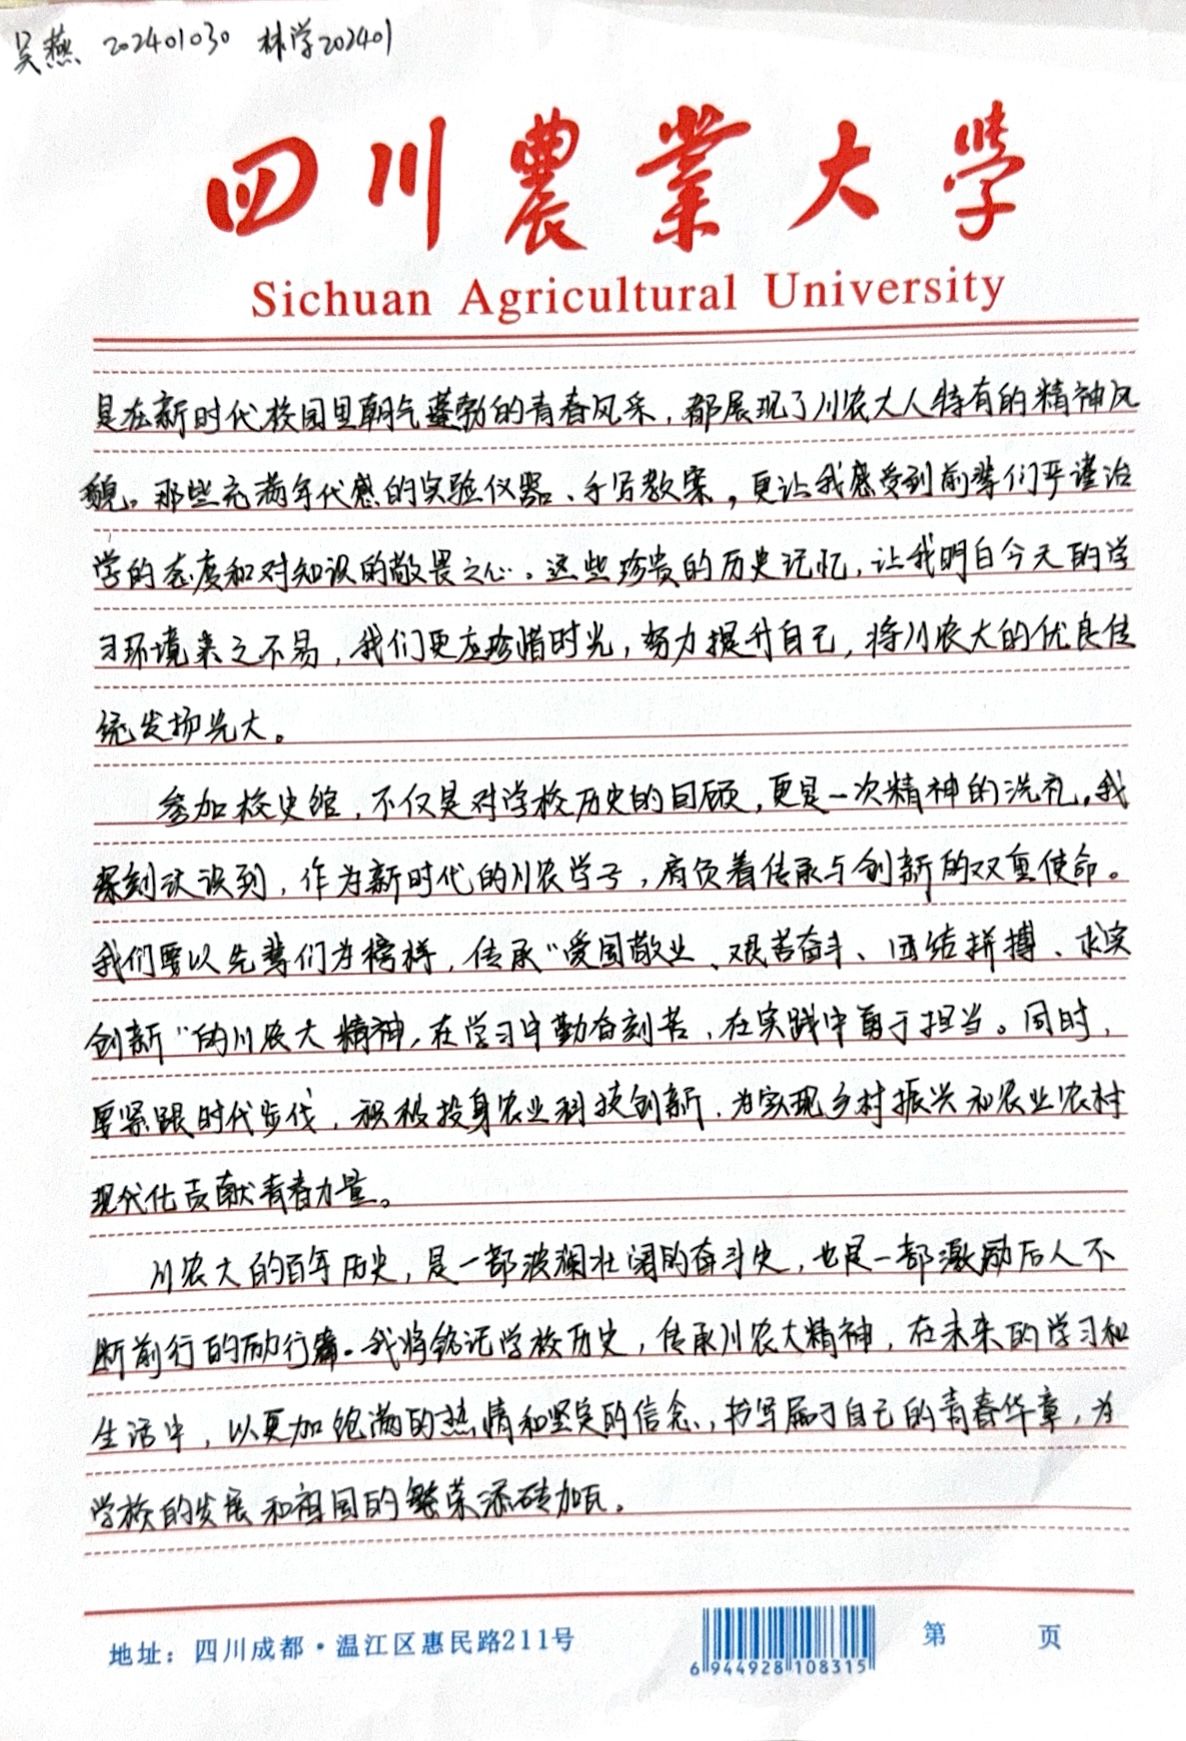 吴燕 202401030 林学202401
四川農業大學
Sichuan Agricultural University
是在新时代校园里朝气蓬勃的青春风采，都展现了川农大人特有的精神风
貌。那些充满年代感的实验仪器、手写教案，更让我感受到前辈们严谨治
学的态度和对知识的敬畏之心。这些珍贵的历史记忆，让我明白今天的学
习环境来之不易，我们更应珍惜时光，努力提升自己，将川农大的优良传
统发扬光大。
参加校史馆，不仅是对学校历史的回顾，更是一次精神的洗礼。我
深刻认识到，作为新时代的川农学子，肩负着传承与创新的双重使命。
我们要以先辈们为榜样，传承“爱国敬业、艰苦奋斗、团结拼搏、求实
创新”的川农大精神，在学习中勤奋刻苦，在实践中勇于担当。同时，
要紧跟时代步伐，积极投身农业科技创新，为实现乡村振兴和农业农村
现代化贡献青春力量。
川农大的百年历史，是一部波澜壮阔的奋斗史，也是一部激励后人不
断前行的励行篇。我将铭记学校历史，传承川农大精神，在未来的学习和
生活中，以更加饱满的热情和坚定的信念，书写属于自己的青春华章，为
学校的发展和祖国的繁荣添砖加瓦。
地址：四川成都·温江区惠民路211号
6 944928 108315
第 页